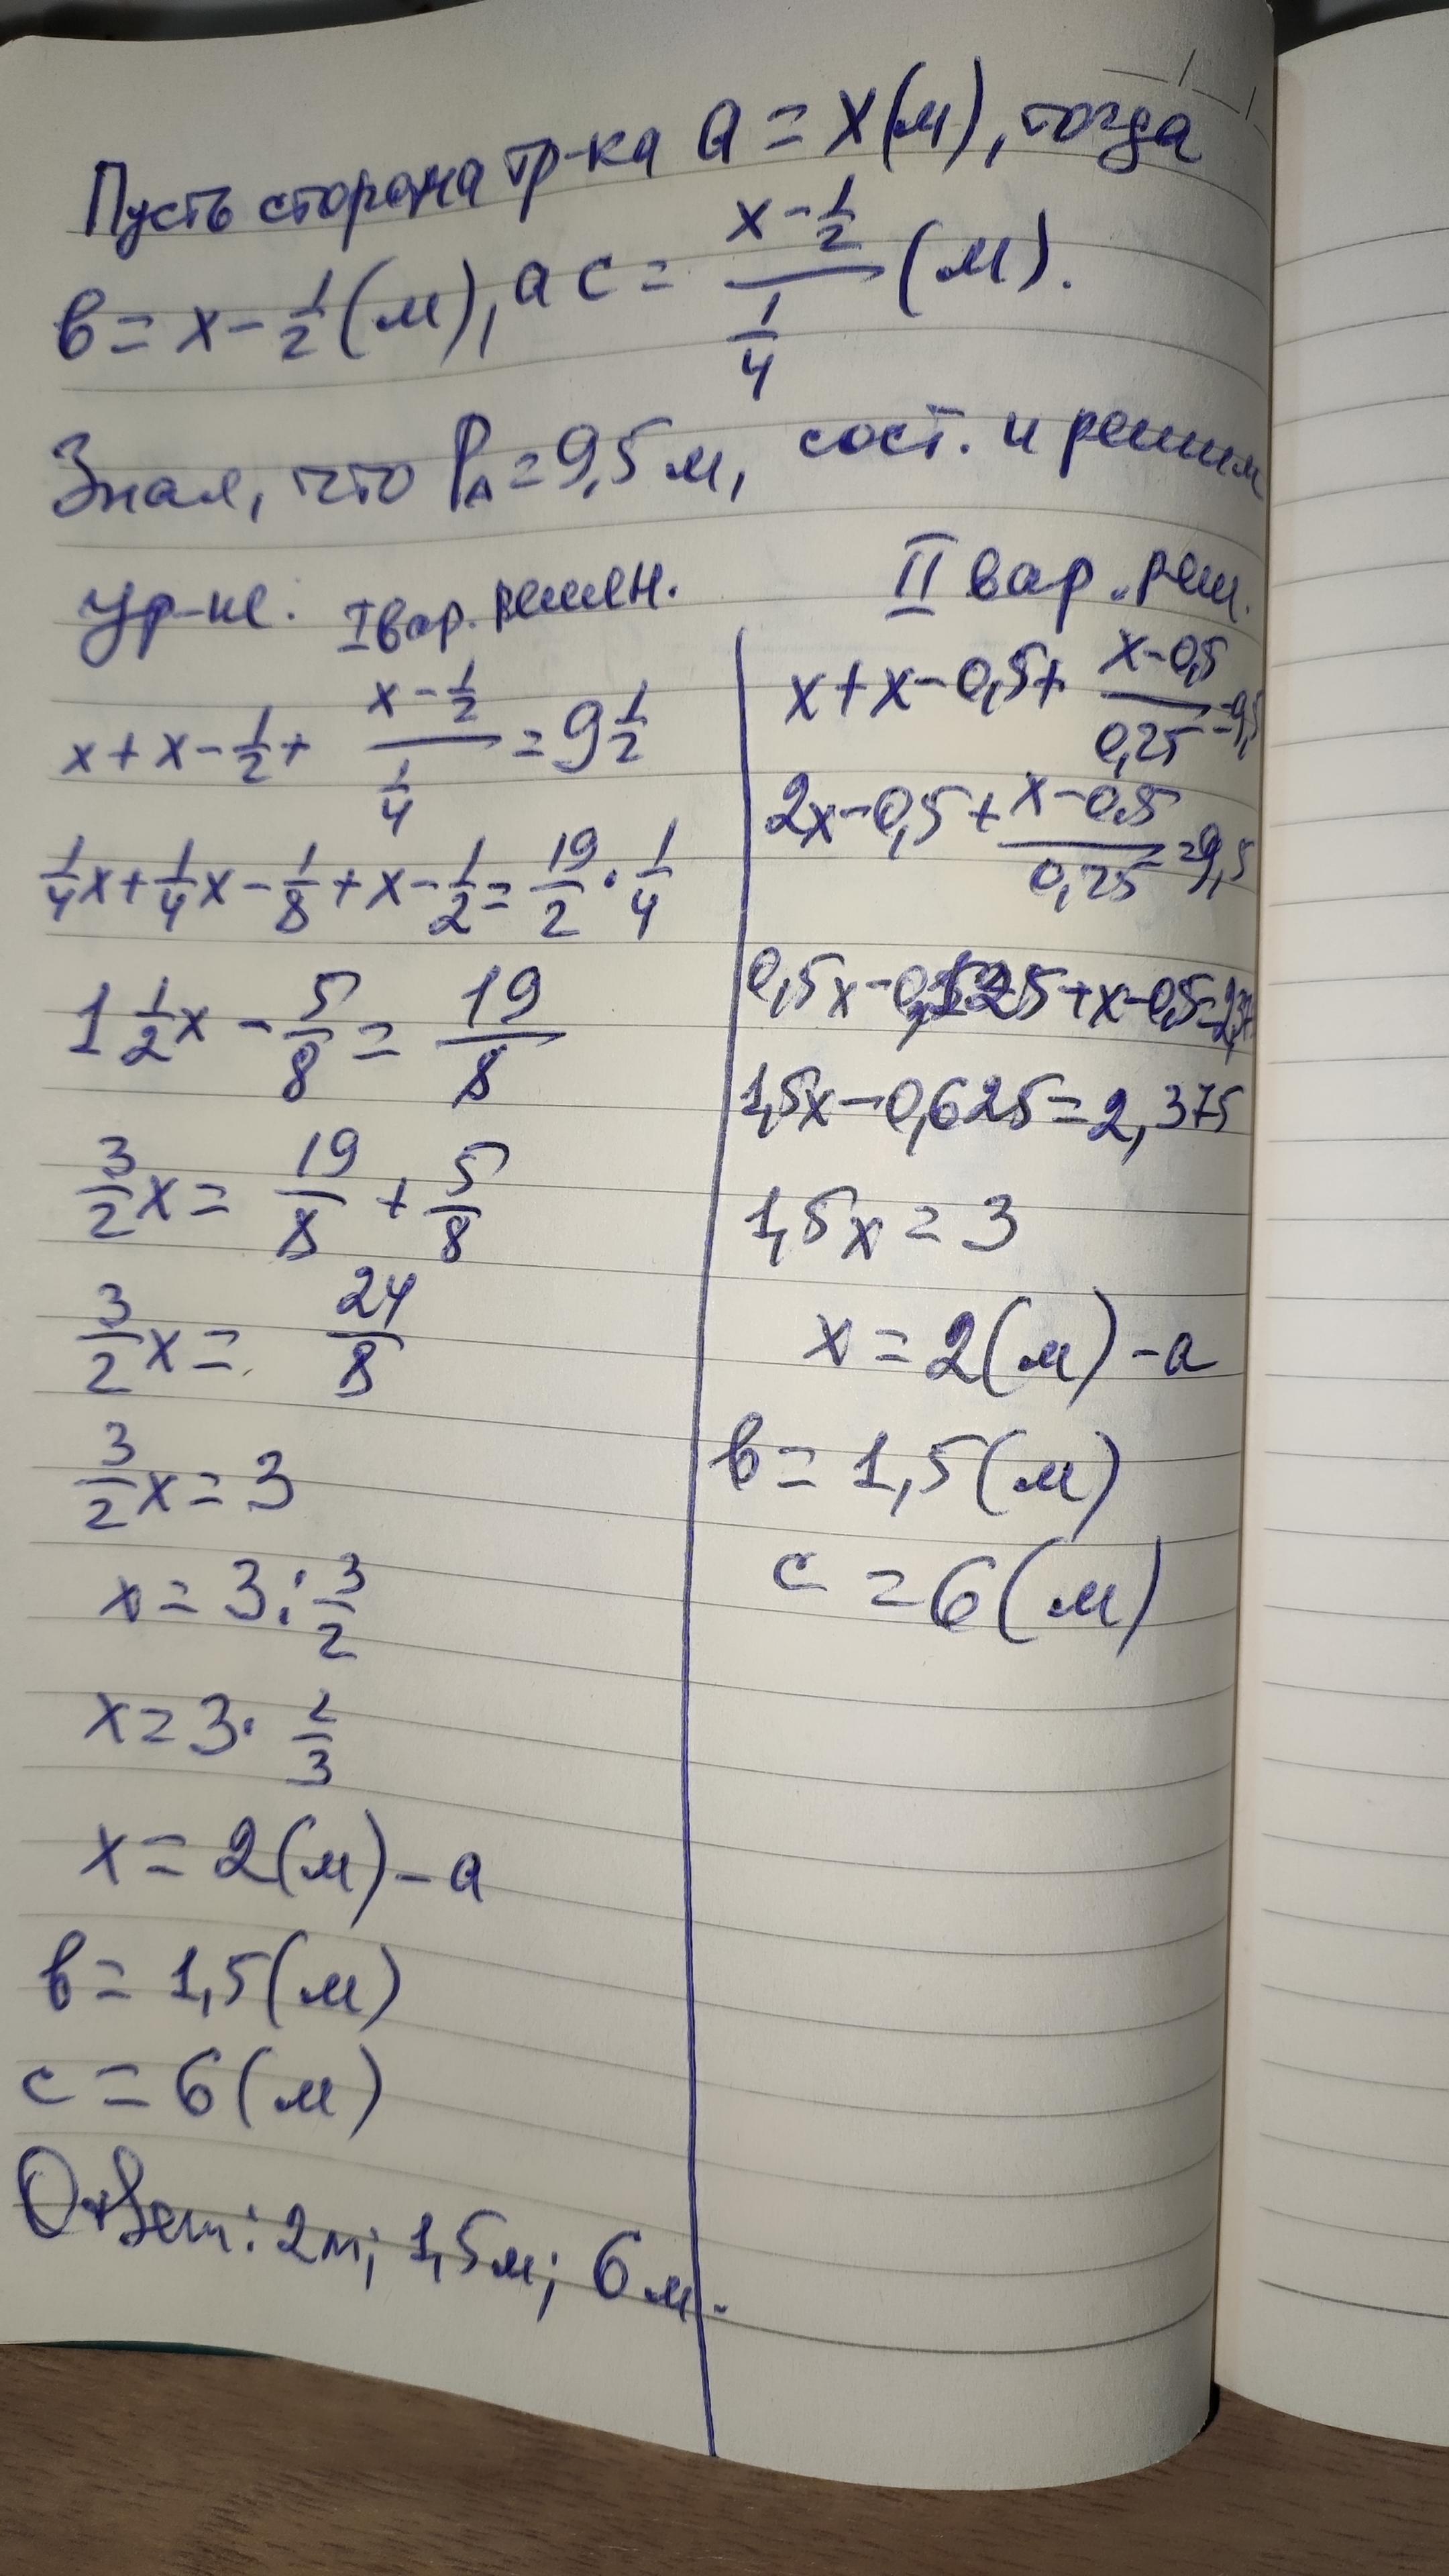 Пусть сторона тр-ка a = x(м), тогда
в = x - 1/2 (м), а c = (x - 1/2)/(1/4) (м).
Зная, что P△ = 9,5 м, сост. и решим
ур-ие. I вар. решен.
x + x - 1/2 + (x - 1/2)/(1/4) = 9 1/2
1/4x + 1/4x - 1/8 + x - 1/2 = 19/2 · 1/4
1 1/2x - 5/8 = 19/8
3/2x = 19/8 + 5/8
3/2x = 24/8
3/2x = 3
x = 3 : 3/2
x = 3 · 2/3
x = 2(м) - a
в = 1,5(м)
c = 6(м)
Ответ: 2м; 1,5м; 6м.
II вар. реш.
x + x - 0,5 + (x - 0,5)/0,25 = 9,5
2x - 0,5 + (x - 0,5)/0,25 = 9,5
0,5x - 0,125 + x - 0,5 =
1,5x - 0,625 = 2,375
1,5x = 3
x = 2(м) - a
в = 1,5(м)
c = 6(м)